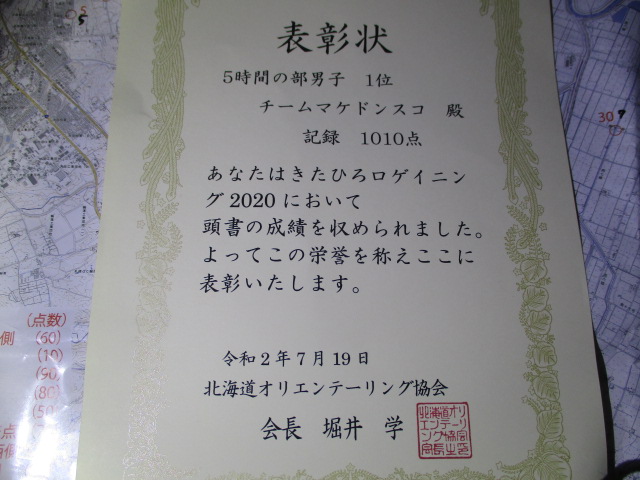 表彰状
5時間の部男子 1位
チームマケドンスコ 殿
記録 1010点
あなたはきたひろロゲイニン
グ2020において
頭書の成績を収められました。
よってこの栄誉を称えここに
表彰いたします。
令和2年7月19日
北海道オリエンテーリング協会
会長 堀井 学
北海道オリ
エンテーリ
ング協会
(点数)
側 (60)
(10)
(90)
(80)
(50)
5
30